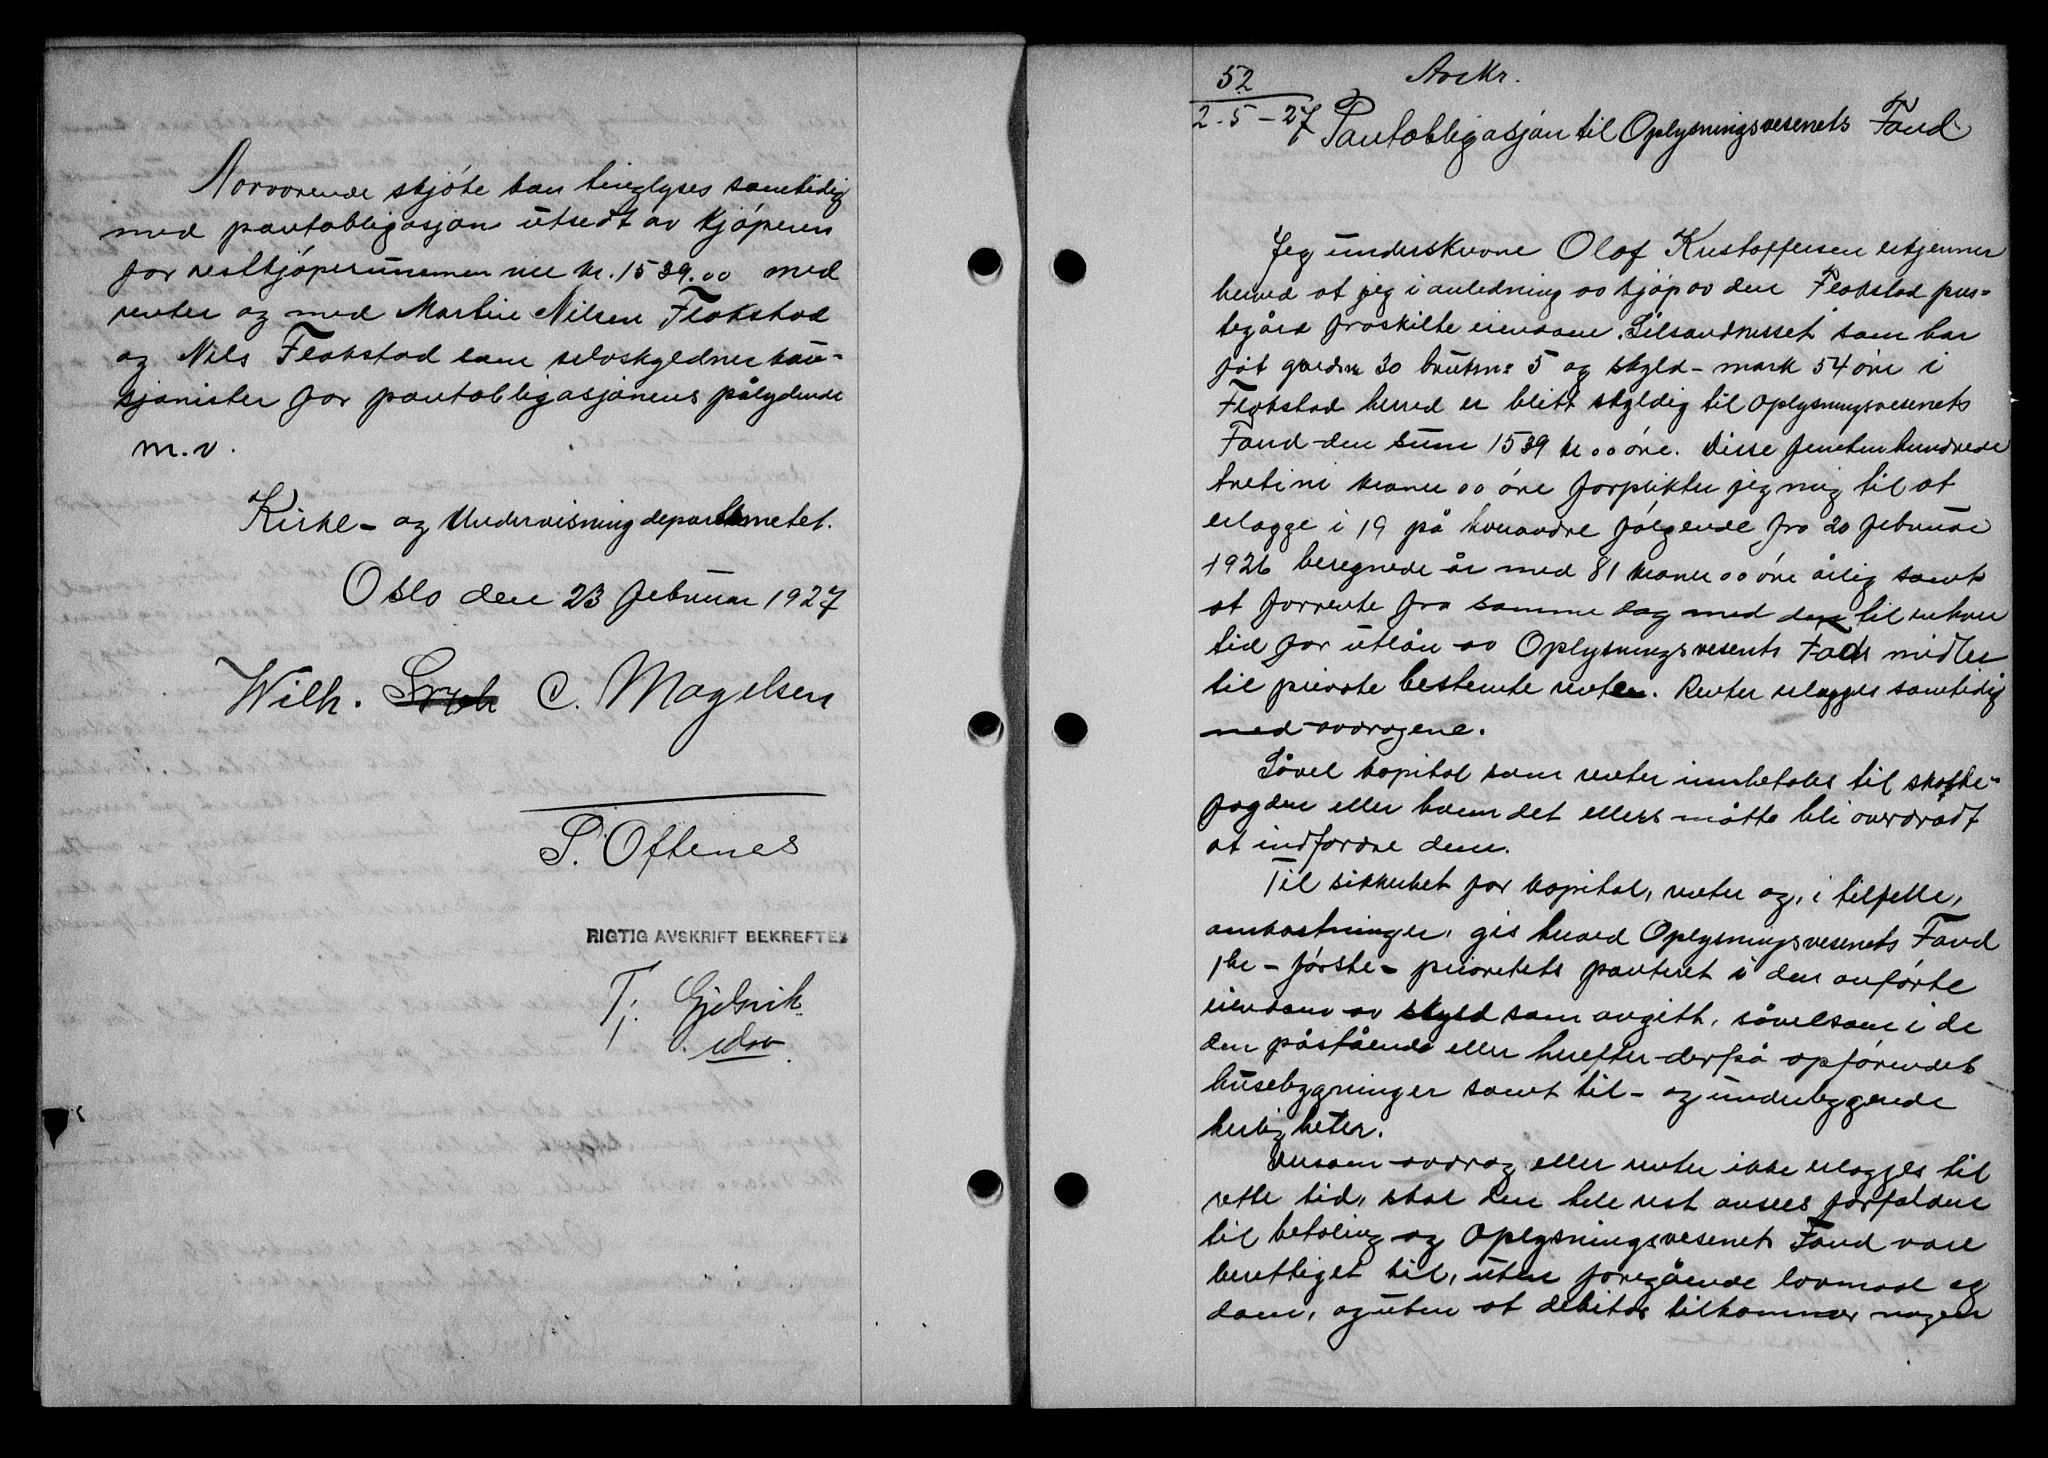 Nærværende skjöte kan tinglyses samtidig
med pantobligasjon utsedt av kjöperen
for restkjöpesummen nu kr. 1539.00 med
renter og med Martin Nilsen Flakstad
og Nils Flakstad som selvskyldner kau-
sjonister for pantobligasjonens pålydende
m.v.
Kirke- og Undervisningdepartementet.
Oslo den 23 februar 1927
Wilh. C. Magelsen
P. Oftenes
RIGTIG AVSKRIFT BEKREFTES
T. Gjelsvik
edsv
52
2-5-27
Avskr.
Pantobligasjon til Oplysningsvesenets Fond
Jeg underskrevne Olaf Kristoffersen erkjenner
herved at jeg i anledning av kjöp av den Flakstad pres-
tegård fraskilte eiendom. Lilsandnesset som har
fåt gardsnr 30 bruksnr 5 og skyld - mark 54 öre i
Flakstad herred er blitt skyldig til Oplysningsvesenets
Fond den sum 1539 kr 00 öre. Disse femtenhundrede
tretini kroner 00 öre forplikter jeg mig til at
erlægge i 19 på hverandre fölgende fra 20 februar
1926 beregnede år med 81 kroner 00 öre årlig samt
at forrente fra samme dag med den til enhver
tid for utlån av Oplysningsvesents Fods midler
til private bestemte renter. Renter erlægges samtidig
med avdragene.
Såvel kapital som renter innbetales til skatte-
fogden eller hvem det ellers måtte bli overdradt
at indfordre dem.
Til sikkerhet for kapital, renter og, i tilfelle,
omkostninger, gis herved Oplysningsvesenets Fond
1ste - förste - prioritets panteret i den anförte
eiendom av skyld som avgitt, såvelsom i de
den påstående eller herefter derpå opförendes
husebygninger samt til- og underliggende
herligheter.
Dersom avdrag eller renter ikke erlægges til
rette tid, skal den hele rest ansees forfalden
til betaling og Oplysningsvesenets Fond være
berettiget til, uten foregående lovmaal og
dom, og uten at debitor tilkommer nogen